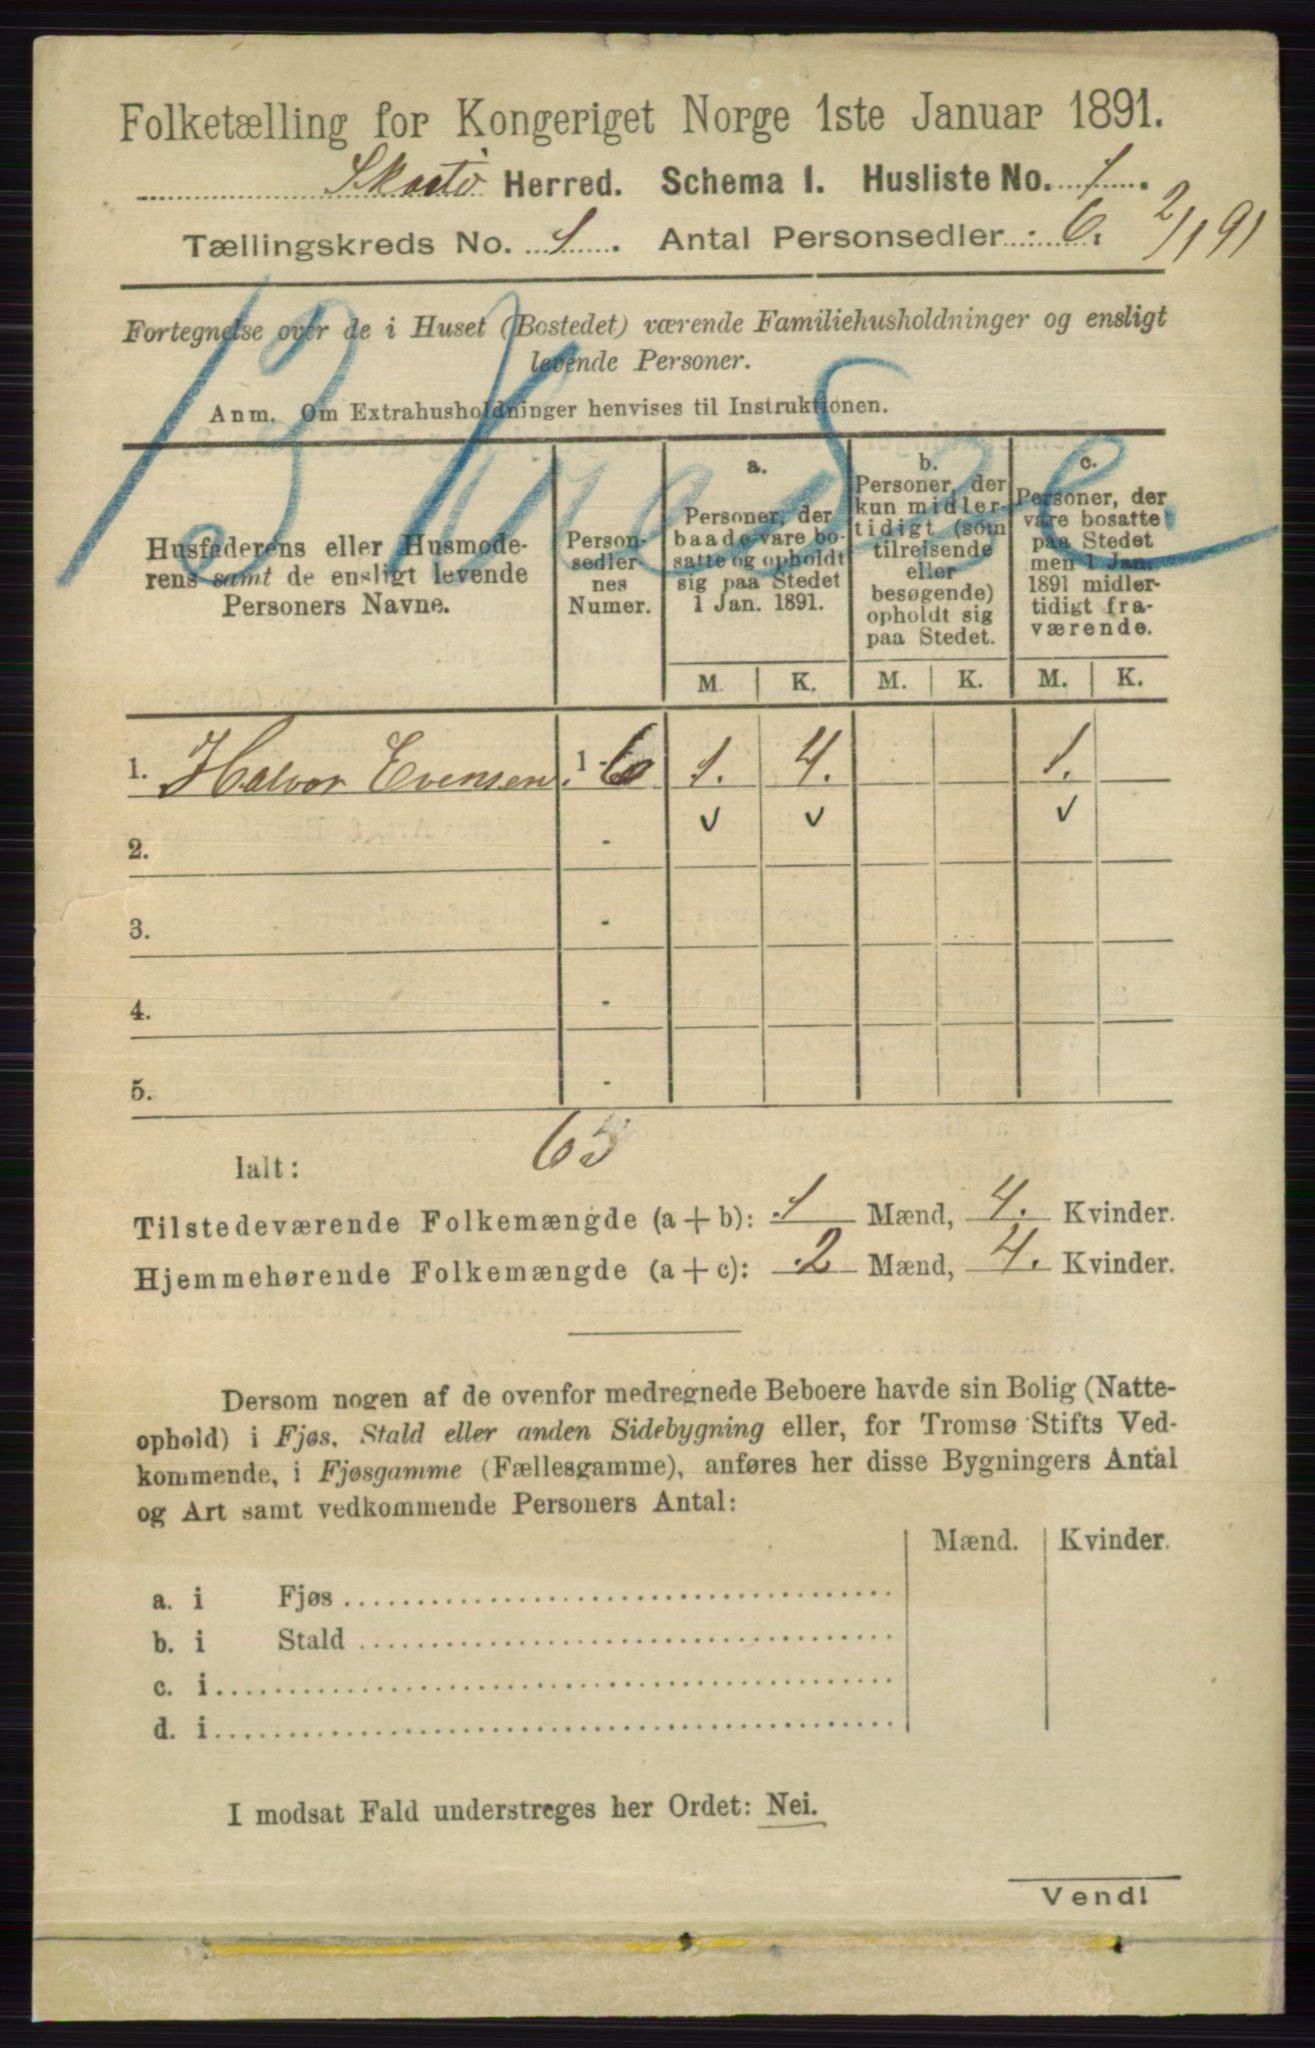 Folketælling for Kongeriget Norge 1ste Januar 1891.
Skaatø Herred. Schema I. Husliste No. 1.
Tællingskreds No. 1. Antal Personsedler: 6. 2/1 91
Fortegnelse over de i Huset (Bostedet) værende Familiehusholdninger og ensligt
levende Personer.
Anm. Om Extrahusholdninger henvises til Instruktionen.
Husfaderens eller Husmode-
rens samt de ensligt levende
Personers Navne.
Person-
sedler-
nes
Numer.
a.
Personer, der
baade vare bo-
satte og opholdt
sig paa Stedet
1 Jan. 1891.
b.
Personer, der
kun midler-
tidigt (som
tilreisende
eller
besøgende)
opholdt sig
paa Stedet.
c.
Personer, der
vare bosatte
paa Stedet
men 1 Jan.
1891 midler-
tidigt fra-
værende.
M. K. M. K. M. K.
1. Halvor Evensen. 1 - 6 1. 4. 1.
2. -
3. -
4. -
5. -
65
Ialt:
Tilstedeværende Folkemængde (a + b): 1 Mænd, 4. Kvinder.
Hjemmehørende Folkemængde (a + c): 2 Mænd, 4. Kvinder.
Dersom nogen af de ovenfor medregnede Beboere havde sin Bolig (Natte-
ophold) i Fjøs, Stald eller anden Sidebygning eller, for Tromsø Stifts Ved-
kommende, i Fjøsgamme (Fællesgamme), anføres her disse Bygningers Antal
og Art samt vedkommende Personers Antal:
Mænd. Kvinder.
a. i Fjøs
b. i Stald
c. i
d. i
I modsat Fald understreges her Ordet: Nei.
Vend!